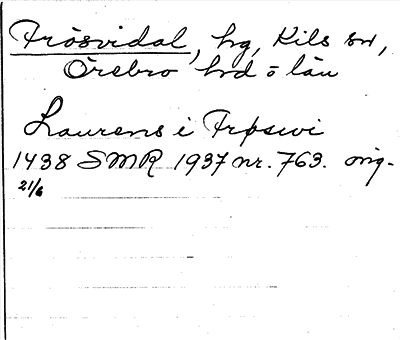 Frösvidal, hg, Kils sn,
Örebro hrd o län
Laurens i Frøswi
1438 SMR 1937 nr. 763. orig.
21/6